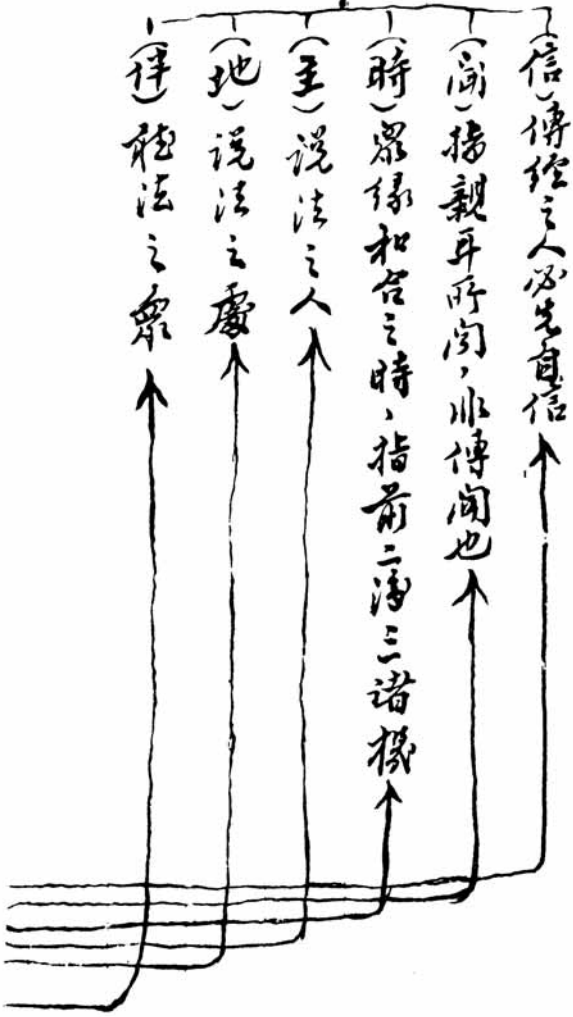 (信)傳經之人必先自信
(聞)指親耳所聞,非傳聞也
(時)眾緣和合之時、指前二濟三諸機
(主)說法之人
(地)說法之處
(伴)聽法之眾